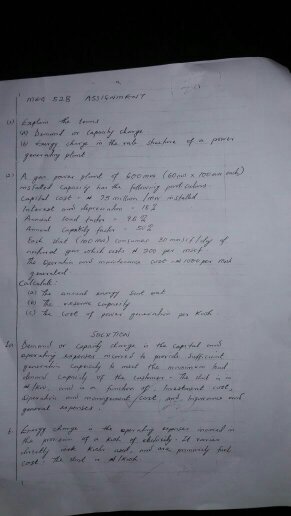 MEG 528 ASSIGNMENT
(1) Explain the terms
(a) Demand or capacity charge
(b) Energy charge in the rate structure of a power
generating plant
(2) A gas power plant of 600MW (6 x 100MW each)
installed capacity has the following particulars:
Capital cost = ₦ 75 million / MW installed
Interest and depreciation = 15%
Annual load factor =
Annual capacity factor = 50%
Each unit (100MW) consumes 30 mmscf/day of
natural gas which costs ₦ 200 per mscf
The Operation and maintenance cost = ₦ 1000 per MWh
generated
Calculate:
(a) The annual energy sent out
(b) The reserve capacity
(c) The cost of power generation per kWh
SOLUTION
1a. Demand or Capacity charge is the capital and
operating expenses incurred to provide sufficient
generation capacity to meet the maximum load
demand capacity of the customers. The unit is in
and is a function of, Investment cost,
Operation and management cost, and, Insurance and
general expenses.
b. Energy charge is the operating expenses incurred in
the provision of a kWh of electricity. It varies
directly with kWh used, and are primarily fuel
cost. The unit is ₦/kWh